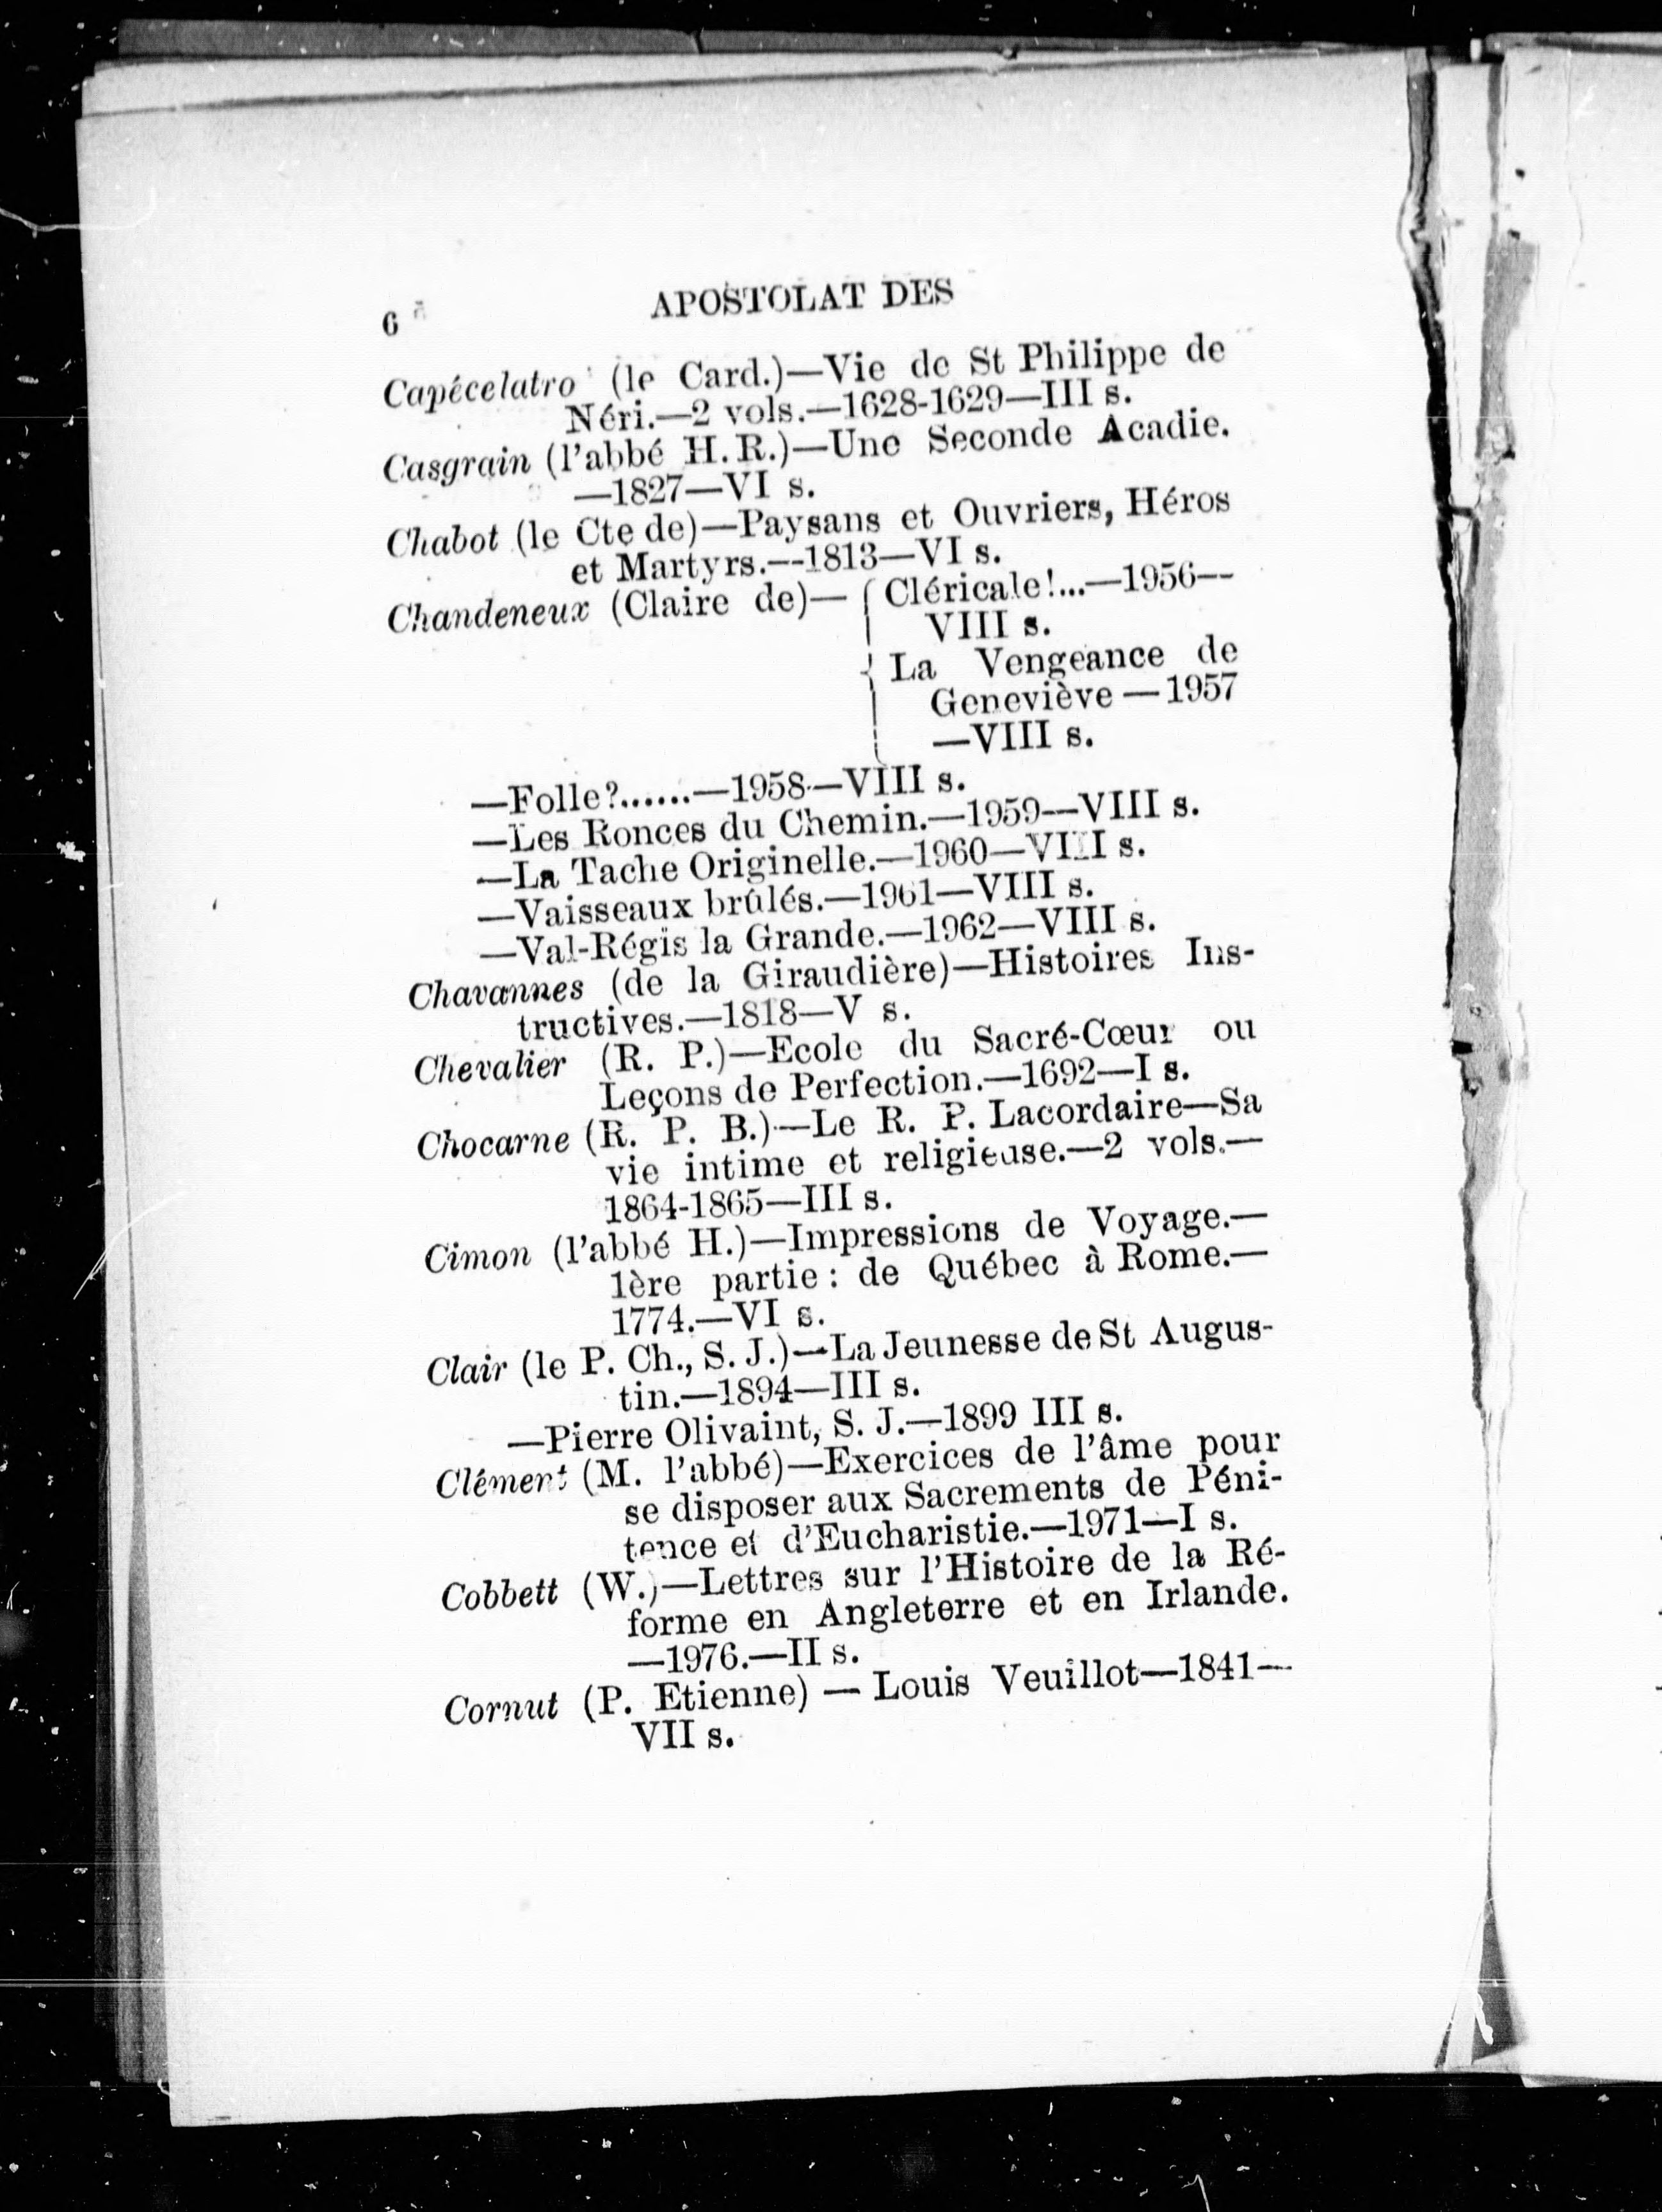 6
APOSTOLAT DES
Capécelatro (le Card.)—Vie de St Philippe de
Néri.—2 vols.—1628-1629—III s.
Casgrain (l'abbé H. R.)—Une Seconde Acadie.
—1827—VI s.
Chabot (le Cte de)—Paysans et Ouvriers, Héros
et Martyrs.—1813—VI s.
Chandeneux (Claire de)— { Cléricale!...—1956—
VIII s.
La Vengeance de
Geneviève — 1957
—VIII s.
—Folle?......—1958—VIII s.
—Les Ronces du Chemin.—1959—VIII s.
—La Tache Originelle.—1960—VIII s.
—Vaisseaux brûlés.—1961—VIII s.
—Val-Régis la Grande.—1962—VIII s.
Chavannes (de la Giraudière)—Histoires Ins-
tructives.—1818—V s.
Chevalier (R. P.)—Ecole du Sacré-Cœur ou
Leçons de Perfection.—1692—I s.
Chocarne (R. P. B.)—Le R. P. Lacordaire—Sa
vie intime et religieuse.—2 vols.—
1864-1865—III s.
Cimon (l'abbé H.)—Impressions de Voyage.—
1ère partie : de Québec à Rome.—
1774.—VI s.
Clair (le P. Ch., S. J.)—La Jeunesse de St Augus-
tin.—1894—III s.
—Pierre Olivaint, S. J.—1899 III s.
Clément (M. l'abbé)—Exercices de l'âme pour
se disposer aux Sacrements de Péni-
tence et d'Eucharistie.—1971—I s.
Cobbett (W.)—Lettres sur l'Histoire de la Ré-
forme en Angleterre et en Irlande.
—1976.—II s.
Cornut (P. Etienne) — Louis Veuillot—1841—
VII s.